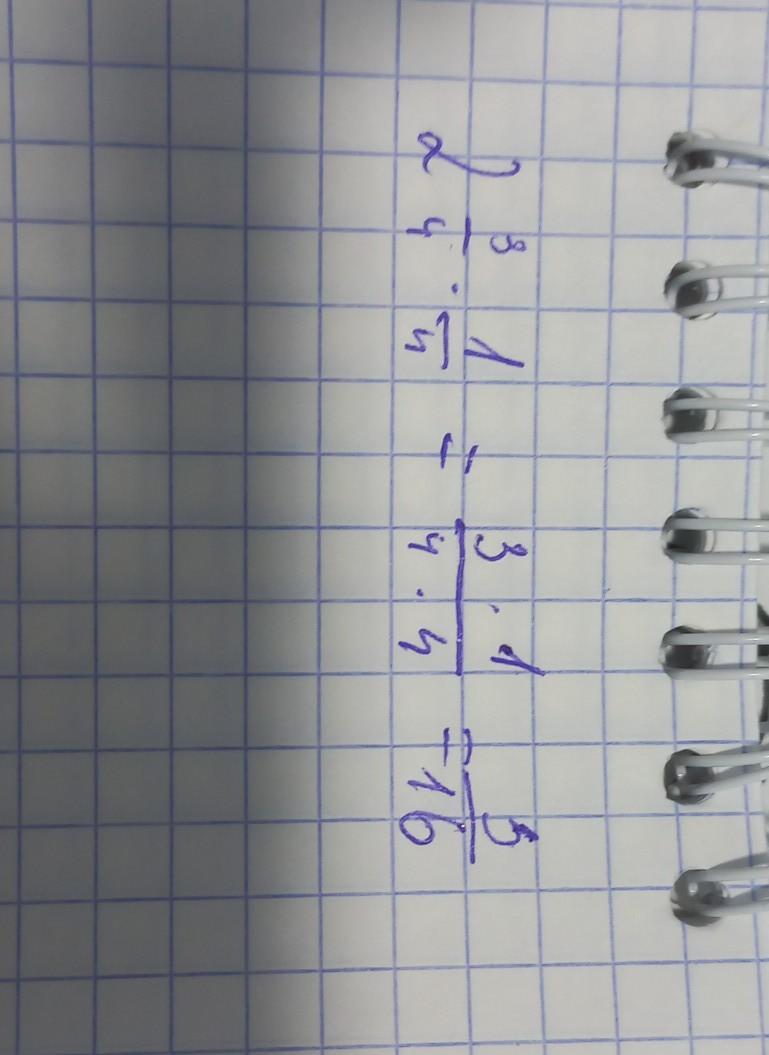 2 3/4 · 1/4 = 3 · 1 / 4 · 4 = 3/16